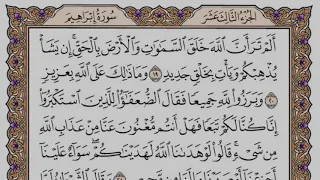 الجزء الثالث عشر
سورة إبراهيم
ألم تر أن الله خلق السموات والأرض بالحق إن يشأ
يذهبكم ويأت بخلق جديد ١٩ وما ذلك على الله بعزيز
٢٠ وبرزوا لله جميعا فقال الضعفؤا للذين استكبروا
إنا كنا لكم تبعا فهل أنتم مغنون عنا من عذاب الله
من شيء قالوا لو هدىنا الله لهدينكم سواء علينا